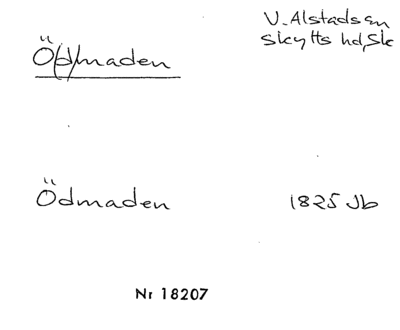 V. Alstads sn
Skytts hd, Sk
Ö(d)maden
Ödmaden 1825 Jb
Nr 18207